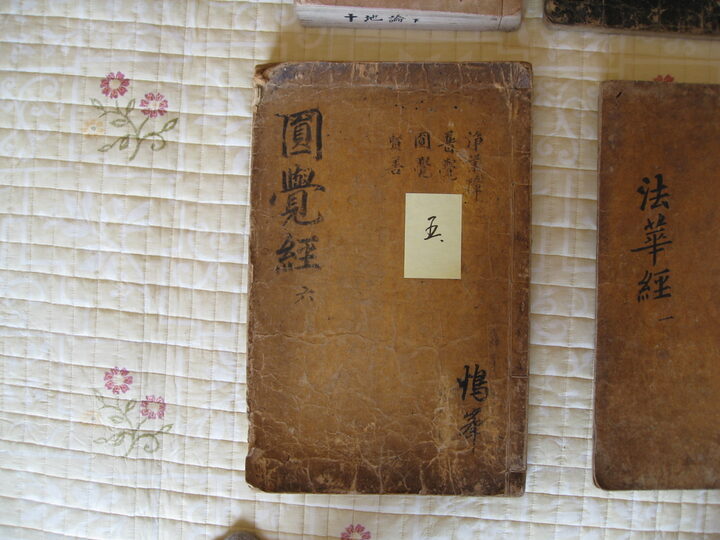 十地論下
圓覺經 六
淨業障
普覺
圓覺
賢善
五、
法華經 一